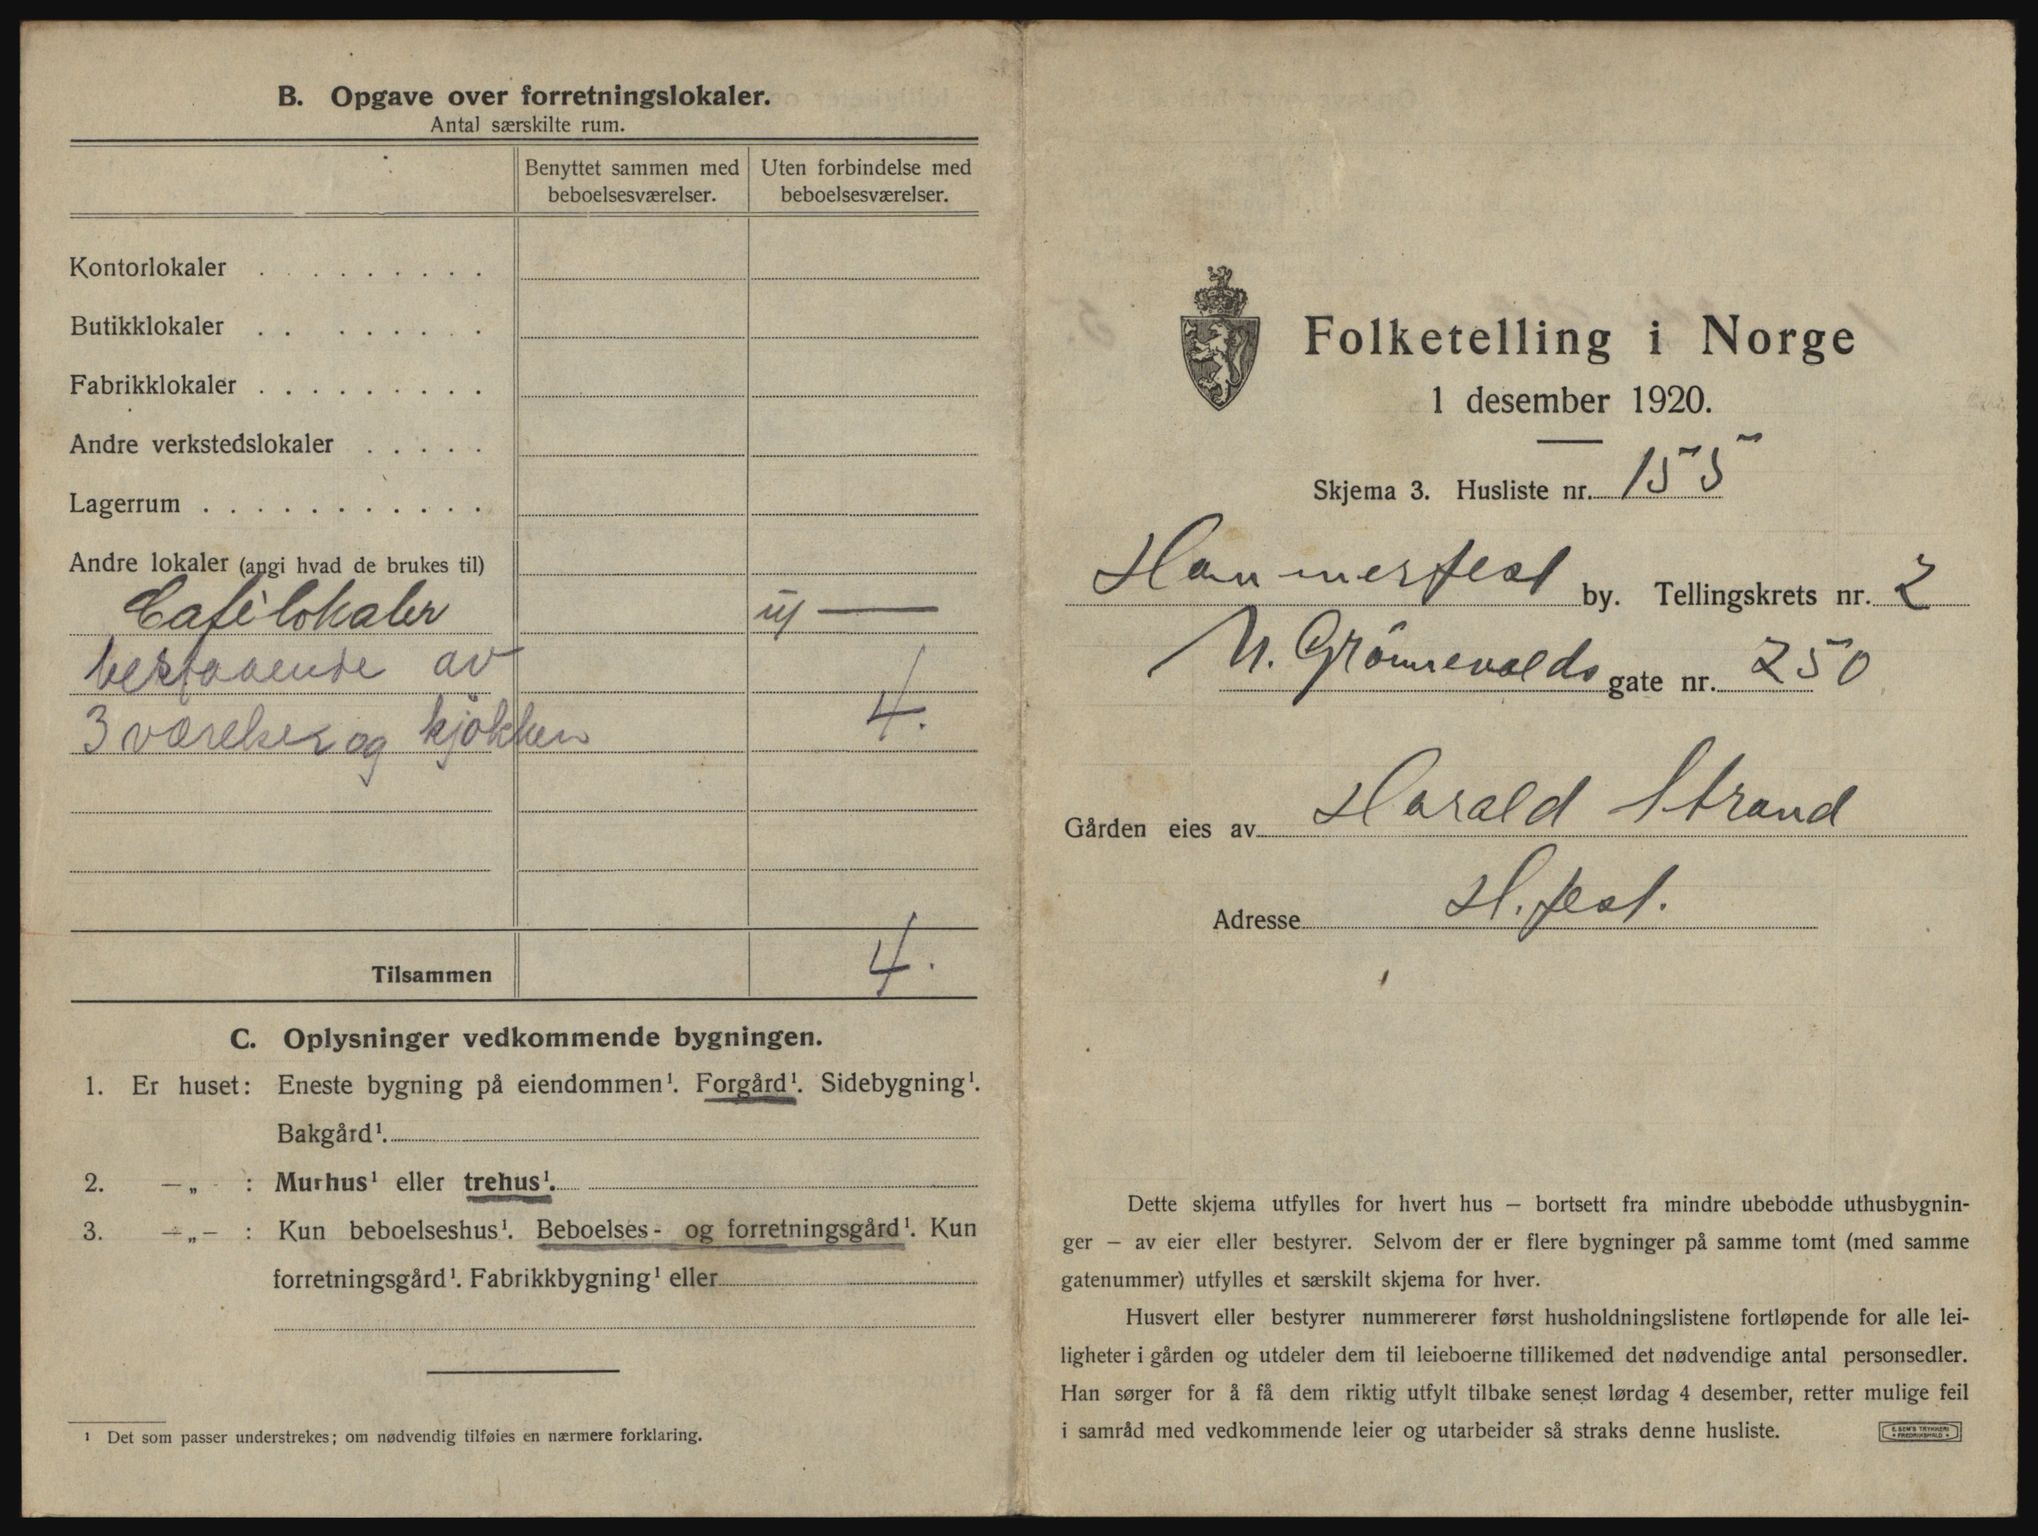 B. Opgave over forretningslokaler.
Antal særskilte rum.
Benyttet sammen med beboelsesværelser.
Uten forbindelse med beboelsesværelser.
Kontorlokaler . . . . . . . . .
Butikklokaler . . . . . . . .
Fabrikklokaler . . . . . . . . .
Andre verkstedslokaler . . . . .
Lagerrum . . . . . . . . . . .
Andre lokaler (angi hvad de brukes til)
Cafèlokaler
bestaaende av
3 værelser og kjökken 4.
Tilsammen 4.
C. Oplysninger vedkommende bygningen.
1. Er huset: Eneste bygning på eiendommen¹. Forgård¹. Sidebygning¹.
Bakgård¹.
2. —„— : Murhus¹ eller trehus¹.
3. —„— : Kun beboelseshus¹. Beboelses- og forretningsgård¹. Kun
forretningsgård¹. Fabrikkbygning¹ eller
¹ Det som passer understrekes; om nødvendig tilføies en nærmere forklaring.
Folketelling i Norge
1 desember 1920.
Skjema 3. Husliste nr. 155
Hammerfest by. Tellingskrets nr. 2
N. Grönnevolds gate nr. 250
Gården eies av Harald Strand
Adresse H.fest.
Dette skjema utfylles for hvert hus — bortsett fra mindre ubebodde uthusbygnin-
ger — av eier eller bestyrer. Selvom der er flere bygninger på samme tomt (med samme
gatenummer) utfylles et særskilt skjema for hver.
Husvert eller bestyrer nummererer først husholdningslistene fortløpende for alle lei-
ligheter i gården og utdeler dem til leieboerne tillikemed det nødvendige antal personsedler.
Han sørger for å få dem riktig utfylt tilbake senest lørdag 4 desember, retter mulige feil
i samråd med vedkommende leier og utarbeider så straks denne husliste.
E. SEM'S TRYKKERI
• FREDRIKSHALD •